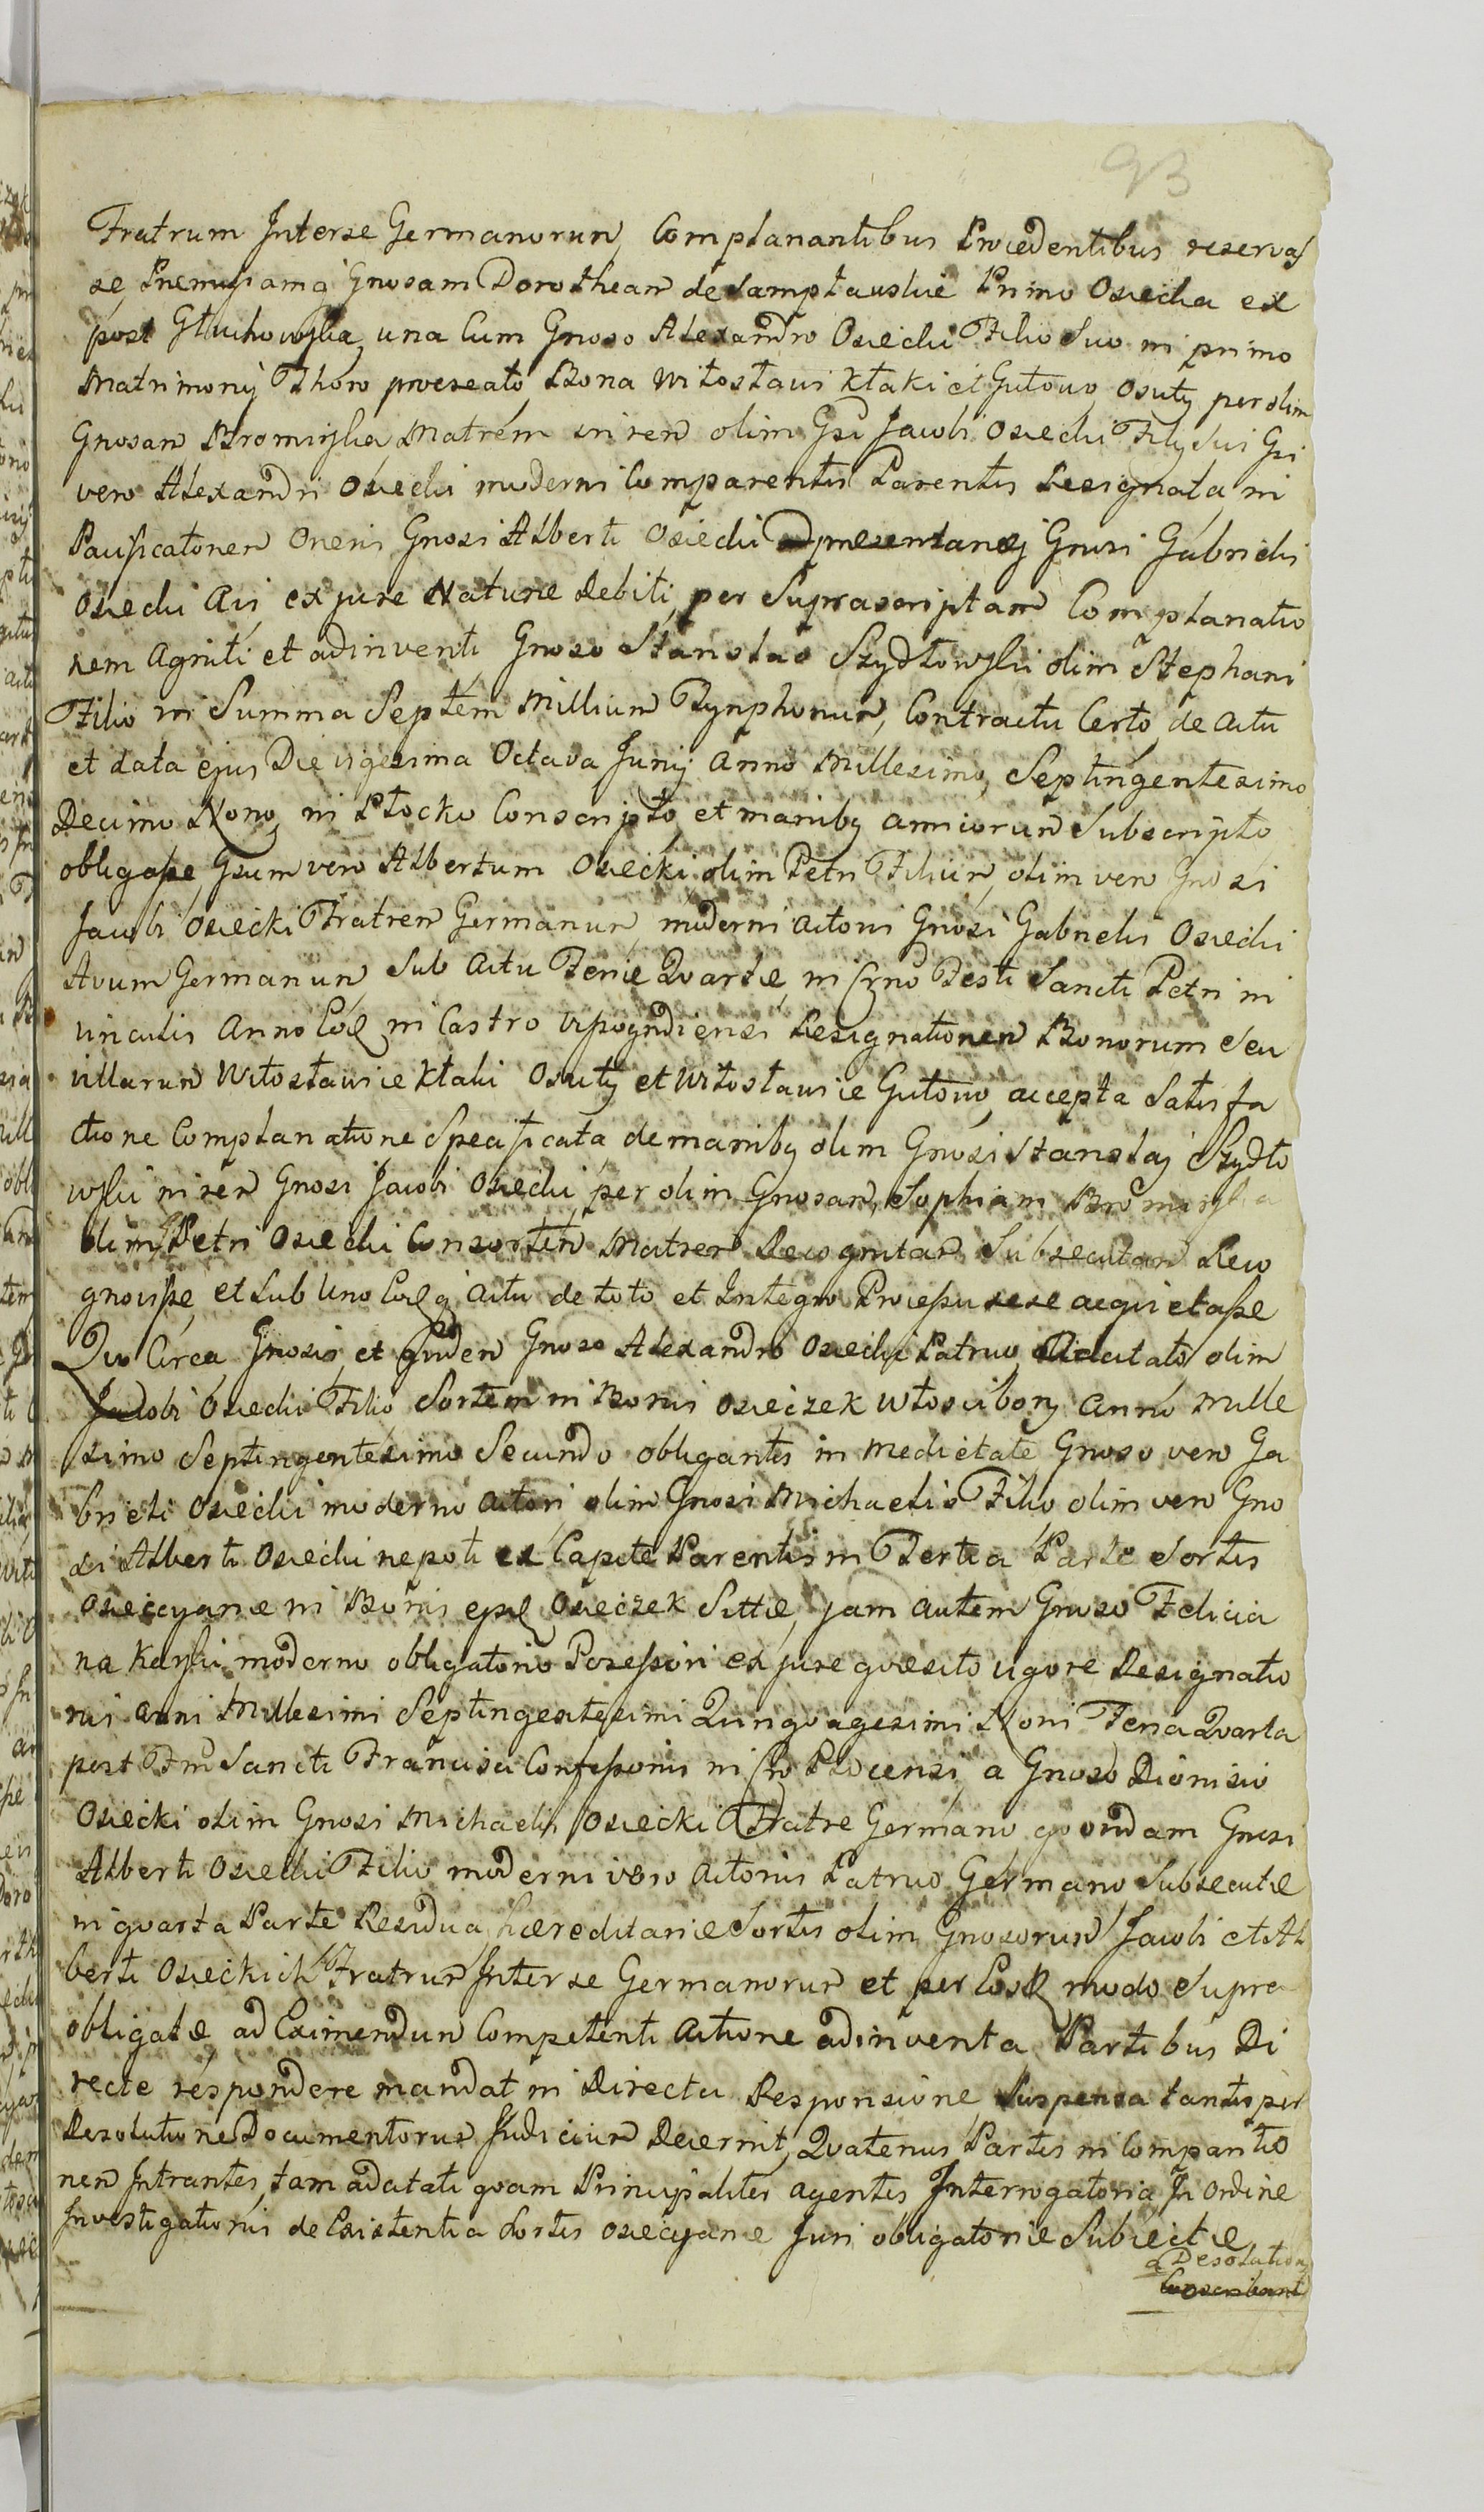 93
Fratrum Interse Germanorum, Complanantibus Procedentibus reservas
se, Premissamq Gnosam Dorotheam de Lamptauskie Primo Osiecka ex
post Głuchowska, una Cum Gnoso Alexandro Osiecki Filio Suo in primo
Matrimonij Thoro procreato, Bona Witosławi Kłaki et Gutowo Osuty per olim
Gnosam Bromirska Matrem in rem olim Gsi Jacobi Osiecki Filij Sui Gsi
vero Alexandri Osiecki moderni Comparentis Parentis Resignata, in
Pacificationem Oneris Gnosi Alberti Osiecki praesentanej Gnosi Gabrielis
Osiecki Avi, ex jure Naturae Debiti, per Suprascriptam Complanatio
nem Agniti et adinventi Gnoso Stanslao Szydłowski olim Stephani
Filio in Summa Septem Millium Tynphonum, Contractu Certo de Actu
et data ejus Die vigesima Octava Junij Anno Millesimo, Septingentesimo
Decimo Nono, in Płocko Conscripto, et maniby amicorum Subscripto
obligasse, Gsum vero Albertum Osiecki olim Petri Filium, olim vero Gnosi
Jacobi Osiecki Fratrem Germanum, moderni Actoris Gnosi Gabrielis Osiecki
Avum Germanum, Sub Actu Feriae Quartae, in Crno Festi Sancti Petri in
vinculis Anno Eodem in Castro Wyssogrodiensi Resignationem Bonorum Seu
villarum Witosławice Kłaki Osuty et Witosławice Gutowo, accepta Satisfa
ctione Complanatione Specificata de maniby olim Gnosi Stanslaj Szydło
wski in rem Gnosi Jacobi Osiecki, per olim Gnosam, Sophiam Bromirska
olim Petri Osiecki Consortem Matrem Recognitam Subsecutam Reco
gnovisse, et Sub Uno Eodq Actu de toto et Integro Processu sese acquietasse
Quo Circa, Gnosis et quidem Gnoso Alexandro Osiecki Patruo Adcitato olim
Jacobi Osiecki Filio Sortem in Bonis Osieczek Włosciborz Anno Mille
simo Septingentesimo Secundo obligantis in medietate Gnoso vero Ga
brieli Osiecki moderno Actori olim Gnosi Michaelis Filio olim vero Gno
si Alberti Osiecki nepoti ex Capite Parentis in Tertia Parte Sortis
Osiecyanae in Bonis ejsd Osieczek Sittae, jam autem Gnoso Felicia
na Kayski moderno obligatorio Possessori ex jure quaesito vigore Resignatio
nis anni Millesimi Septingentesimi Quinquagesimi Noni Feria Quarta
post Fm Sancti Francisci Confessoris in Cro Plocensi, a Gnoso Dionisio
Osiecki olim Gnosi Michaelis Osiecki Fratre Germano quondam Gnosi
Alberti Osiecki Filio moderni vero Actoris Patruo Germano Subsecutae
in quarta Parte Residua, haereditariae Sortis olim Gnosorum Jacobi et Al
berti Osieckich Fratrum Inter se Germanorum et per Eosd modo Supra
obligatae ad Eximendum Competenti Actione adinventa, Partibus Di
recte respondere mandat in Directa Responsione, Suspensa tantisper
Resolutione Documentorum Judicium Decernit, Quatenus Partes in Comparitio
nem Intrantes, tam adcitati quam Principaliter agentes Interrogatoria In Ordine
Investigationis de Existentia Sortis Osiecyanae Juri obligatoriae Subiectae
a Desolation
Conscribant